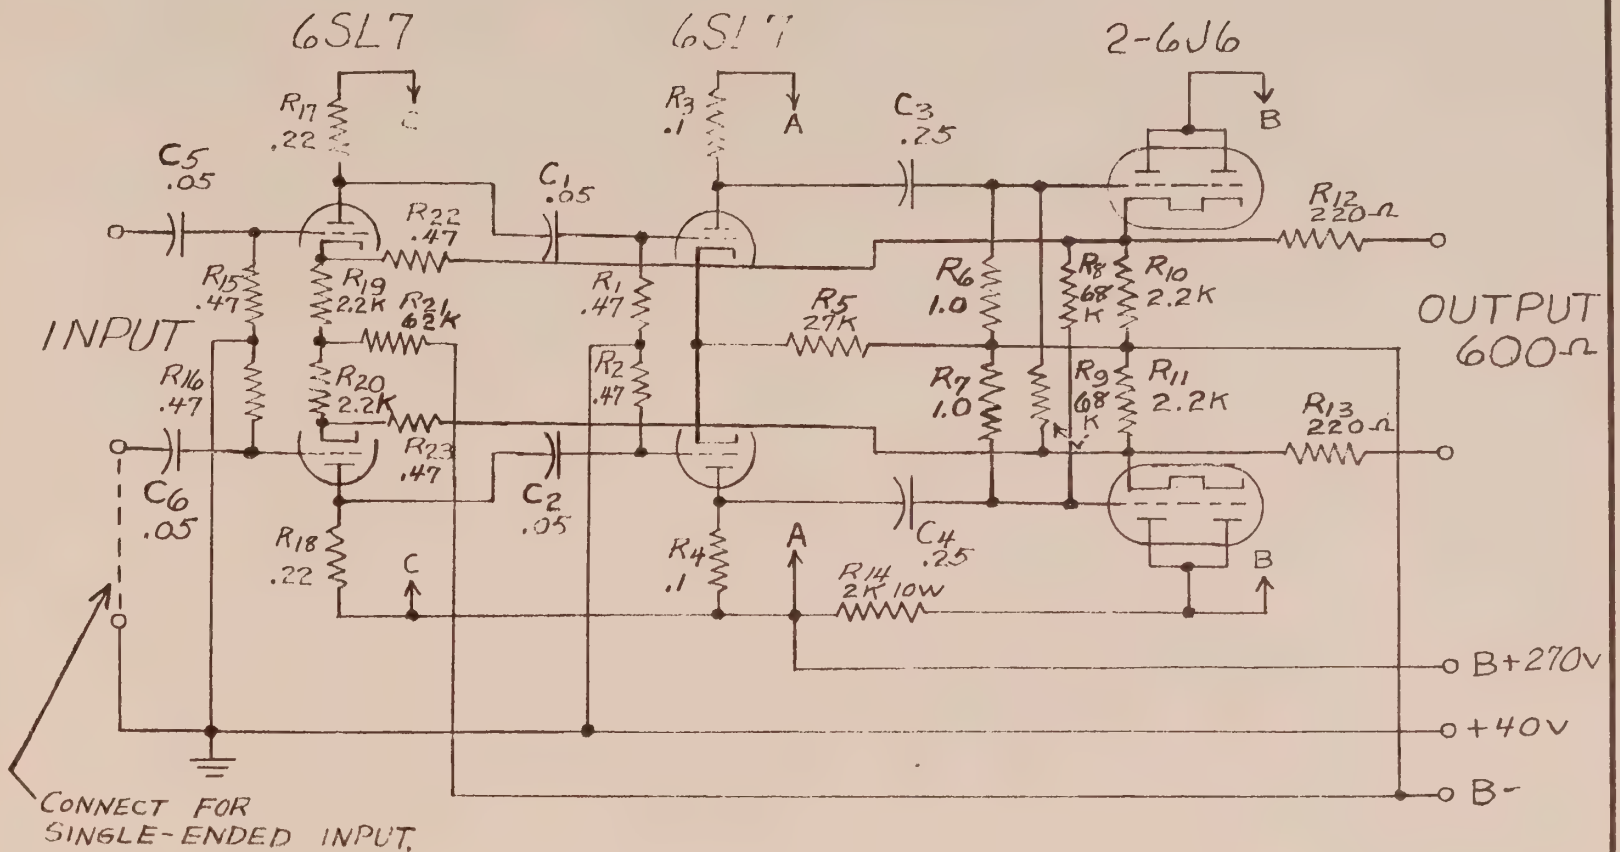 6SL7
6SL7
2-6J6
R17
.22
C
R3
.1
A
C3
.25
B
C5
.05
C1
.05
R22
.47
R12
220Ω
R15
.47
R19
2.2K
R21
62K
R1
.47
R5
27K
R6
1.0
R8
68
K
R10
2.2K
INPUT
OUTPUT
600Ω
R16
.47
R20
2.2K
R2
.47
R7
1.0
R9
68
K
R11
2.2K
R13
220Ω
R23
.47
C6
.05
C2
.05
C4
.25
R18
.22
C
R4
.1
A
R14
2K 10W
B
B+270V
+40V
B-
CONNECT FOR
SINGLE-ENDED INPUT.